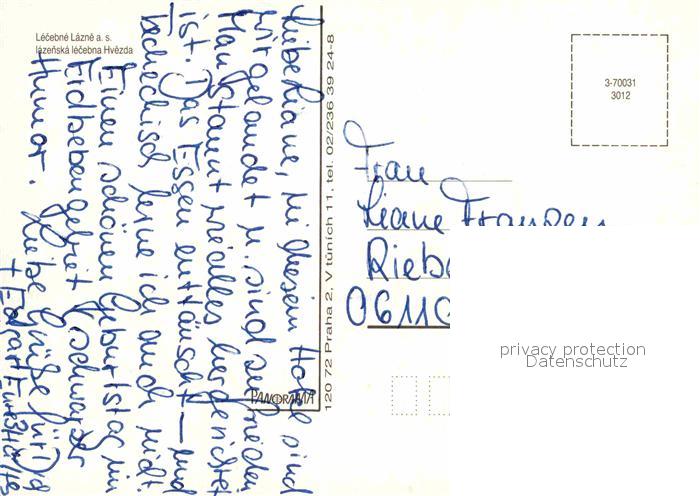 Léčebné Lázně a. s.
lázeňská léčebna Hvězda
Liebe Liane, in diesem Hotel sind
wir gelandet u. sind sehr zufrieden
Man staunt wie alles hergerichtet
ist. Das Essen enttäuscht — und
tschechisch lerne ich auch nicht.
Einen schönen Geburtstag im
Erdbebengebiet schwarzer
Humor. Liebe Grüße für Dich
+ Edgar
PANORAMA
120 72 Praha 2, V tůních 11, tel. 02/236 39 24-8
3-70031
3012
Frau
Liane
0611
privacy protection
Datenschutz